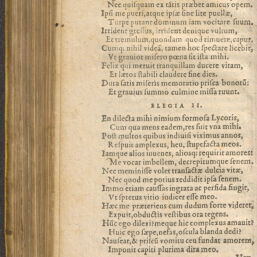 Nec quisquam ex istis præbet amicus opem.
Ipsi me pueri, atque ipsæ sine lite puellæ,
Turpe putant dominum iam vocitare suum.
Irrident gressus, irrident denique vultum,
Et tremulum, quondam quod timuere, caput.
Cumq; nihil videã, tamen hoc spectare licebit,
Vt grauior misero pœna sit ista mihi.
Felix qui meruit tranquillam ducere vitam,
Et lætos stabili claudere fine dies.
Dura satis miseris memoratio prisca bonorũ:
Et grauius summo culmine missa ruunt.
ELEGIA II.
En dilecta mihi nimium formosa Lycoris,
Cum qua mens eadem, res fuit vna mihi.
Post multos quibus indiuisi viximus annos,
Respuit amplexus, heu, stupefacta meos.
Iamque alios iuuenes, aliosq; requirit amores:
Me vocat imbellem, decrepitumque senem.
Nec meminisse volet transactæ dulcia vitæ,
Nec quod me potius reddidit ipsa senem.
Immo etiam caussas ingrata ac perfida fingit,
Vt spretum vitio iudicet esse meo.
Hæc me præteriens cum dudum forte videret,
Expuit, obductis vestibus ora tegens.
Hũc ego dilexi? meque hic complexus amauit?
Huic ego sæpe, nefas, oscula blanda dedi?
Nauseat, & priscũ vomitu ceu fundat amorem,
Imponit capiti plurima dira meo.